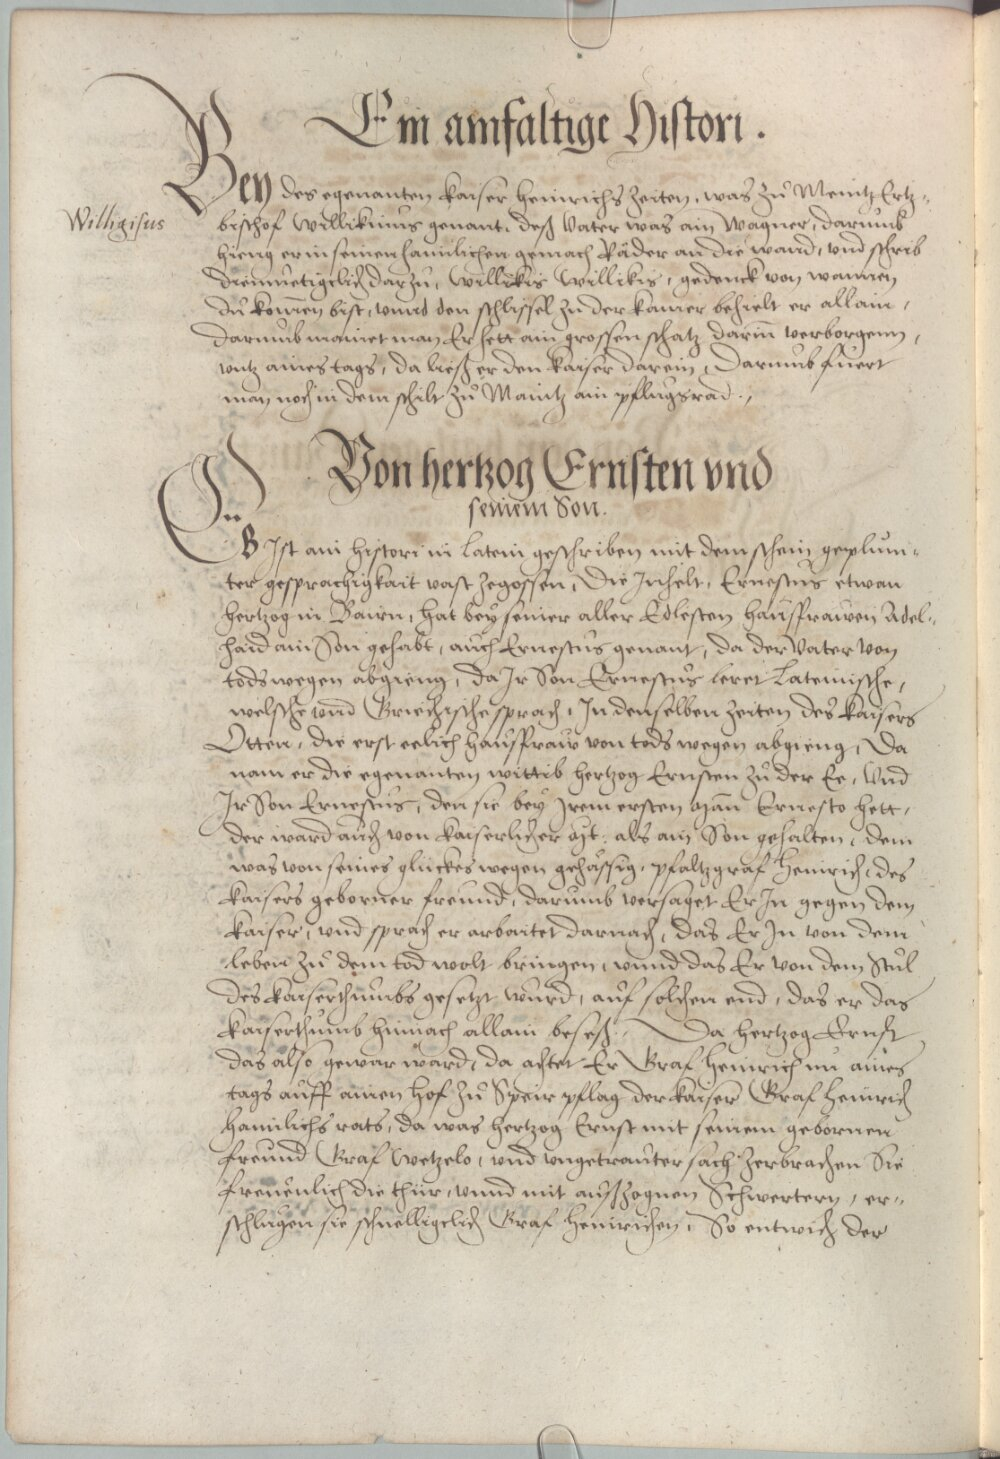 Ein ainfaltige Histori.
Bey des egenanten kaiser Heinrichs Zeiten, was zu Meintz Ertz-
Willigisus
bischof Willikinus genant, deß Vater was ain Wagner, darumb
hieng er in seinen haimlichen gemach Räder an die wand, vnd schrib
diemuetigclich darzu, Willikis Willikis, gedenck von wannen
du komen bist, vnnd den schlissel zu der kamer behielt er allain,
darumb mainet man Er hett ain grossen schatz darin verborgenn,
vntz aines tags, da ließ er den kaiser darein, Darumb fuert
man noch in dem schilt zu Maintz ain pflugsrad.,
Von hertzog Ernsten vnd
seinem Son.
Es Ist ain histori in Latein geschriben mit dem schein geplum-
ter gesprachigkait vast zegossen, Die Inhelt, Ernestus etwan
hertzog in Bairn, hat bey seiner aller Edlesten haußfrawen Adel-
haid ain Son gehabt, auch Ernestus genant, da der Vater von
tods wegen abgieng, da Ir Son Ernestus leret Lateinische,
welsche vnd Griechische sprach, In denselben zeiten des kaisers
Otten, die erst eelich haußfraw von tods wegen abgieng, Da
nam er die egenanten wittib hertzog Ernsten zu der Ee, Vnd
Ir Son Ernestus, den sie bey Irem ersten man Ernesto hett,
der ward auch von kaiserlicher Mt. als ain Son gehalten, dem
was von seines gluckes wegen gehässig, pfaltzgraf Heinrich, des
kaisers geborner freund, darumb versaget Er In gegen dem
kaiser, vnd sprach er arbaitet darnach, das Er In von dem
leben zu dem tod wolt bringen, vnnd das Er von dem Stul
des kaiserthumbs gesetzt wurd, auf solchen end, das er das
kaiserthumb hinnach allain beseß, Da hertzog Ernst
das also gewar ward, da achtet Er Graf Heinrich nu aines
tags auff ainen hof zu Speir pflag der kaiser Graf Heinrich
haimlichs rats, da was hertzog Ernst mit seinem gebornen
freund Graf Wetzelo, vnd vngetrauter sach zerbrachen Sie
freuenlich die thür, vnnd mit außzognen Schwertern, er-
schlugen sie schnelligclich Graf Heinrichen, So entwich der